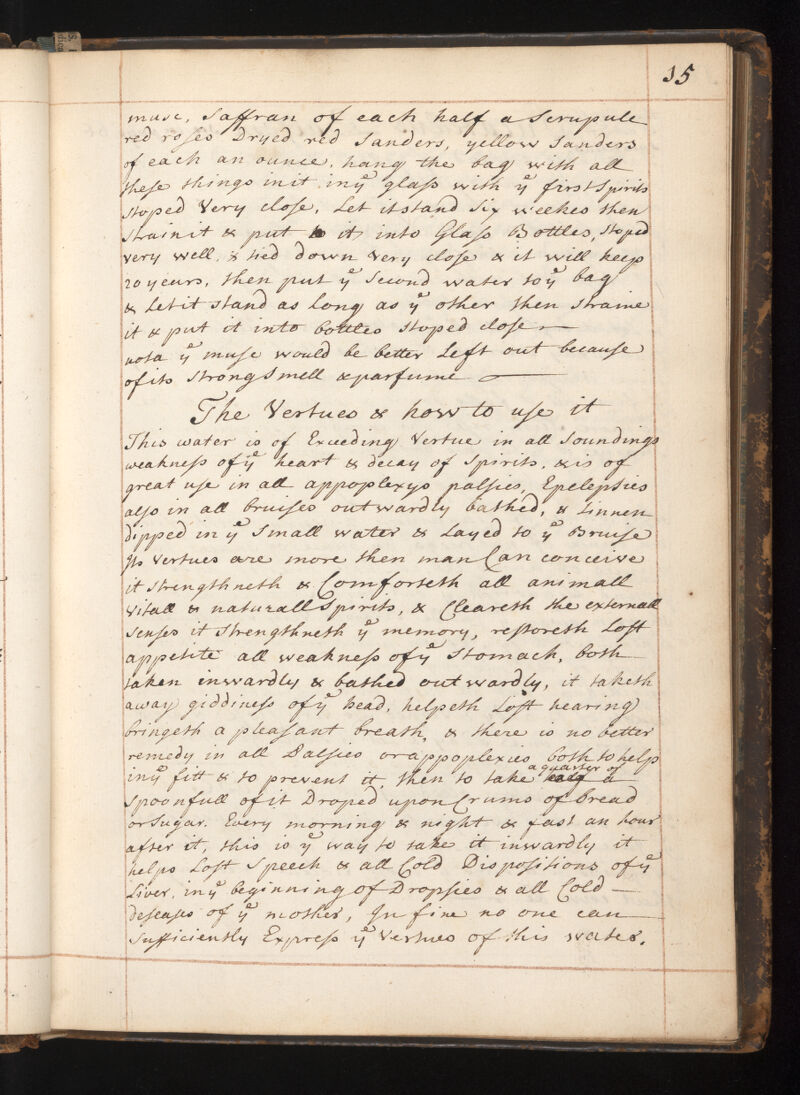 15
musc, Saffran of each half a Scrupule
red roses Dryed red Sanders, yellow Sanders
of each an ounce, hang the bag with all
these things in it in yᵉ glass with yᵉ first Spirits
stoped Very close, Let it stand Six weekes then
strain it & put it into Glass Bottles, stoped
very well, & tied down Very close & it will keep
20 years, then put yᵉ Second water to yᵉ bag
& Let it stand as Long as yᵉ other then straine
it & put it into bottles stoped close
nota yᵉ musc would be better Left out because
of its Strong Smell & parfume
The Vertues & how to use it
This water is of Exceeding Vertue in all Soundings
weakness of yᵉ heart & decay of Spirits, & is of
great use in all appoplexys palsies, Epelepsies
also in all bruises outwardly bathed, & Linnen
dipped in yᵉ Small water & Layed to yᵉ Bruise
Its Vertues are more then man Can conceive
it strengthneth & Comforteth all animall
Vitall & naturall Spirits, & Cleareth the externall
Senses it Strengthneth yᵉ memory, restoreth Lost
appetite all weakness of yᵉ Stomach, both
taken inwardly & bathed outwardly, it taketh
away giddiness of yᵉ head, helpeth Lost hearing
bringeth a pleasant breath, & there is no better
remedy in all Palsies or appoplexies both to help
in yᵉ fitt & to prevent it, then to take a quarter of a
Spoonfull of it Droped upon Crums of bread
or Sugar. Every morning & night & fast an hour
after it, this is yᵉ way to take it inwardly it
helps Lost Speech & all Cold Dispositions of yᵉ
Liver, in yᵉ beginning of Dropsies & all Cold
deseases of yᵉ mother, In fine no one can
Sufficiently Express yᵉ Vertues of this water.